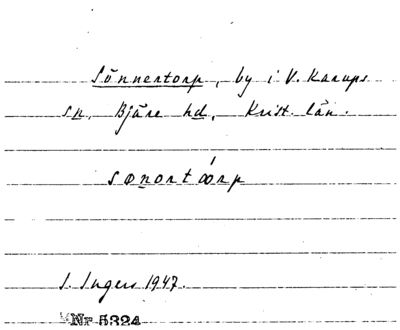 Sönnertorp, by i V. Karups
sn, Bjäre hd, Krist. län.
sønort óørp
I. Ingers 1947.
Nr 5324